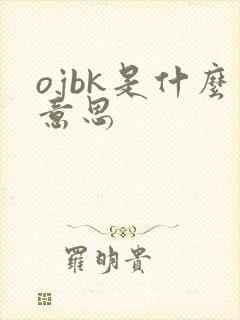 ojbk是什麼
意思
羅明貴